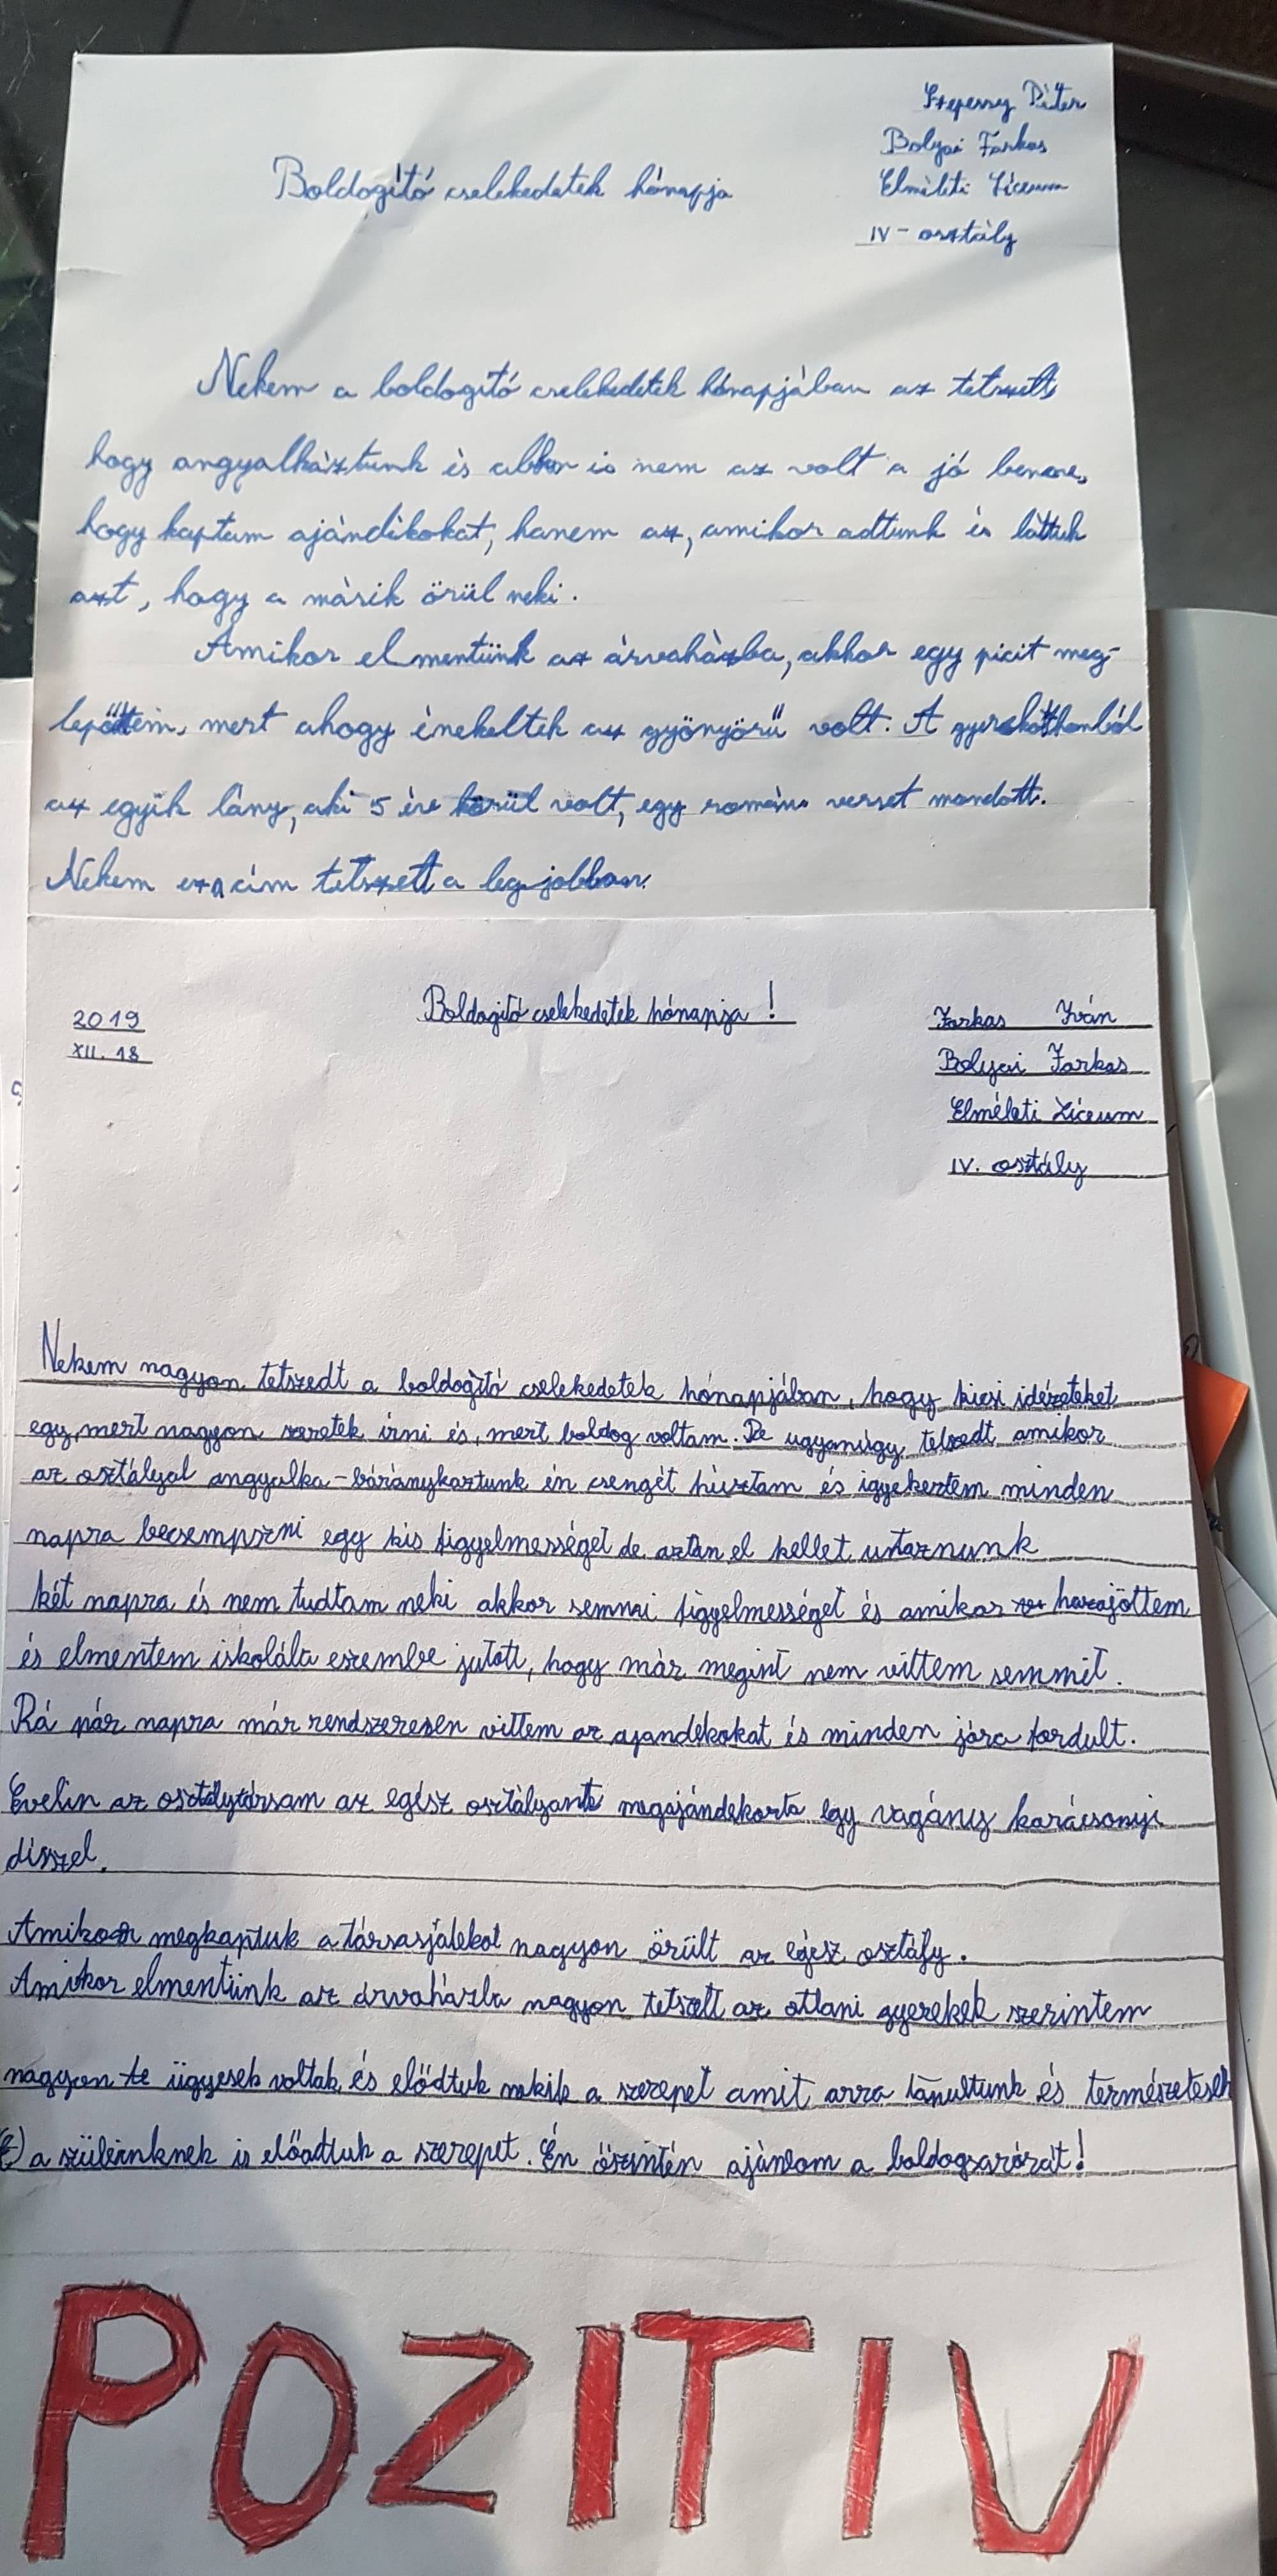 Péter
Bolyai Farkas
Boldogító cselekedetek hónapja
Elméleti Líceum
IV - osztály
Nekem a boldogító cselekedetek hónapjában az tetszett,
hogy angyalkáztunk és abban is nem az volt a jó benne,
hogy kaptam ajándékokat, hanem az, amikor adtunk és láttuk
azt, hogy a másik örül neki.
Amikor el mentünk az árvaházba, akkor egy picit meg-
lepőttem, mert ahogy énekeltek az gyönyörű volt. A gyerekotthonból
az egyik lány, aki 5 év körül volt, egy román verset mondott.
Nekem ez a cím tetszett a leg jobban.
2019
XII. 18
Boldogító cselekedetek hónapja!
Farkas Iván
Bolyai Farkas
Elméleti Líceum
IV. osztály
Nekem nagyon tetszedt a boldogító cselekedetek hónapjában, hogy kicsi idézeteket
egy, mert nagyon szeretek írni és, mert boldog voltam. De ugyanúgy tetszedt amikor
az osztályal angyalka-báránykaztunk én csengét húztam és igyekeztem minden
napra becsempszni egy kis figyelmességet de aztán el kellet utaznunk
két napra és nem tudtam neki akkor semmi figyelmességet és amikor hazajöttem
és elmentem iskolába eszembe jutott, hogy már megint nem vittem semmit.
Rá pár napra már rendszeresen vittem az ajandékokat és minden jóra fordult.
Evelin az osztálytársam az egész osztályant megajándékozta egy vagány karácsonyi
disszel.
Amikor megkaptuk a társasjátékot nagyon örült az egész osztály.
Amikor elmentünk az árvaházba nagyon tetszett az ottani gyerekek szerintem
nagyon te ügyesek voltak és elődtuk nekik a szerepet amit arra tanultunk és természetesen
a szüleinknek is előadtuk a szerepet. Én őszintén ajánlom a boldogsarórát!
POZITIV